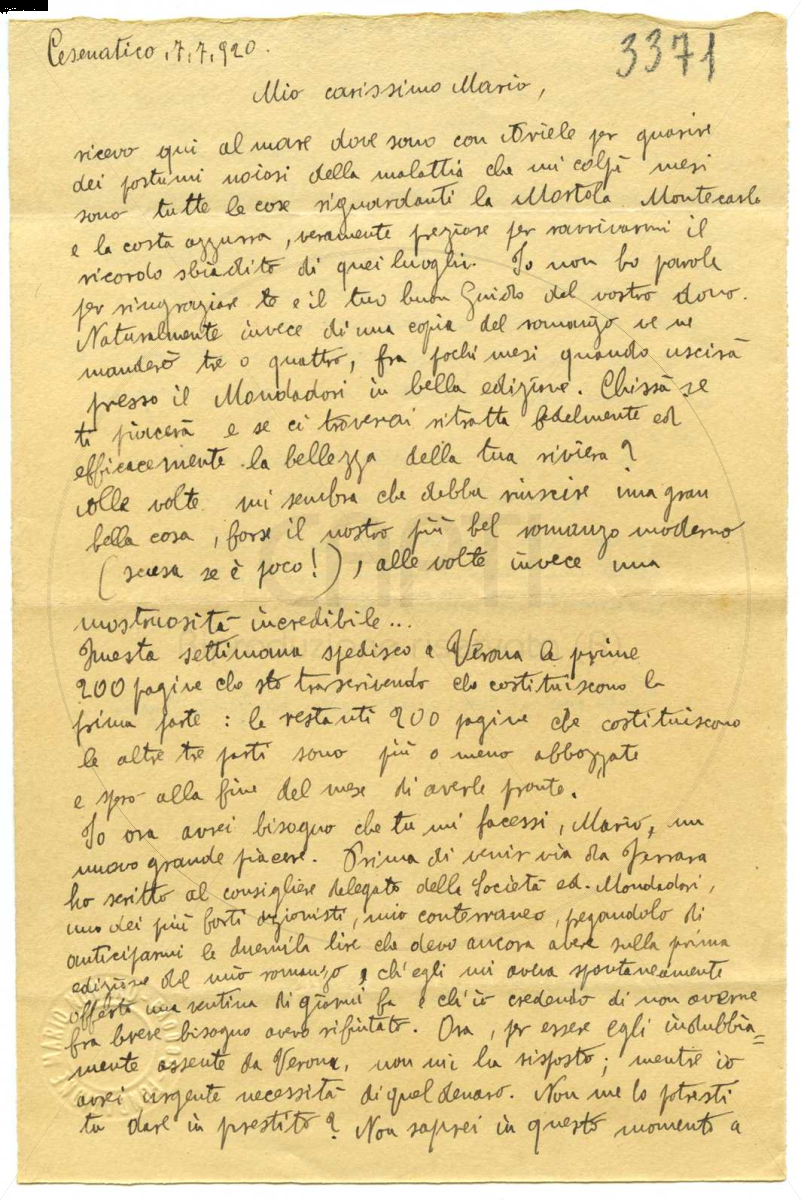 Cesenatico, 7,7,920.
3371
Mio carissimo Mario,
ricevo qui al mare dove sono con Ariele per guarire
dei postumi noiosi della malattia che mi colpì mesi
sono tutte le cose riguardanti la Mortola Montecarlo
e la costa azzurra, veramente preziose per ravvivarmi il
ricordo sbiadito di quei luoghi. Io non ho parole
per ringraziare te e il tuo buon Guido del vostro dono.
Naturalmente invece di una copia del romanzo ve ne
manderò tre o quattro, fra pochi mesi quando uscirà
presso il Mondadori in bella edizione. Chissà se
ti piacerà e se ci troverai ritratta fedelmente ed
efficacemente la bellezza della tua riviera?
Alle volte mi sembra che debba riuscire una gran
bella cosa, forse il nostro più bel romanzo moderno
(scusa se è poco!), alle volte invece una
mostruosità incredibile...
Questa settimana spedisco a Verona le prime
200 pagine che sto trascrivendo che costituiscono la
prima parte: le restanti 200 pagine che costituiscono
le altre tre parti sono più o meno abbozzate
e spero alla fine del mese di averle pronte.
Io ora avrei bisogno che tu mi facessi, Mario, un
nuovo grande piacere. Prima di venir via da Ferrara
ho scritto al consigliere delegato della Società ed. Mondadori,
uno dei più forti azionisti, mio conterraneo, pregandolo di
anticiparmi le duemila lire che devo ancora avere sulla prima
edizione del mio romanzo, ch'egli mi aveva spontaneamente
offerto una ventina di giorni fa e ch'io credendo di non averne
fra breve bisogno avevo rifiutato. Ora, per essere egli indubbia=
mente assente da Verona, non mi ha risposto; mentre io
avrei urgente necessità di quel denaro. Non me lo potresti
tu dare in prestito? Non saprei in questo momento a